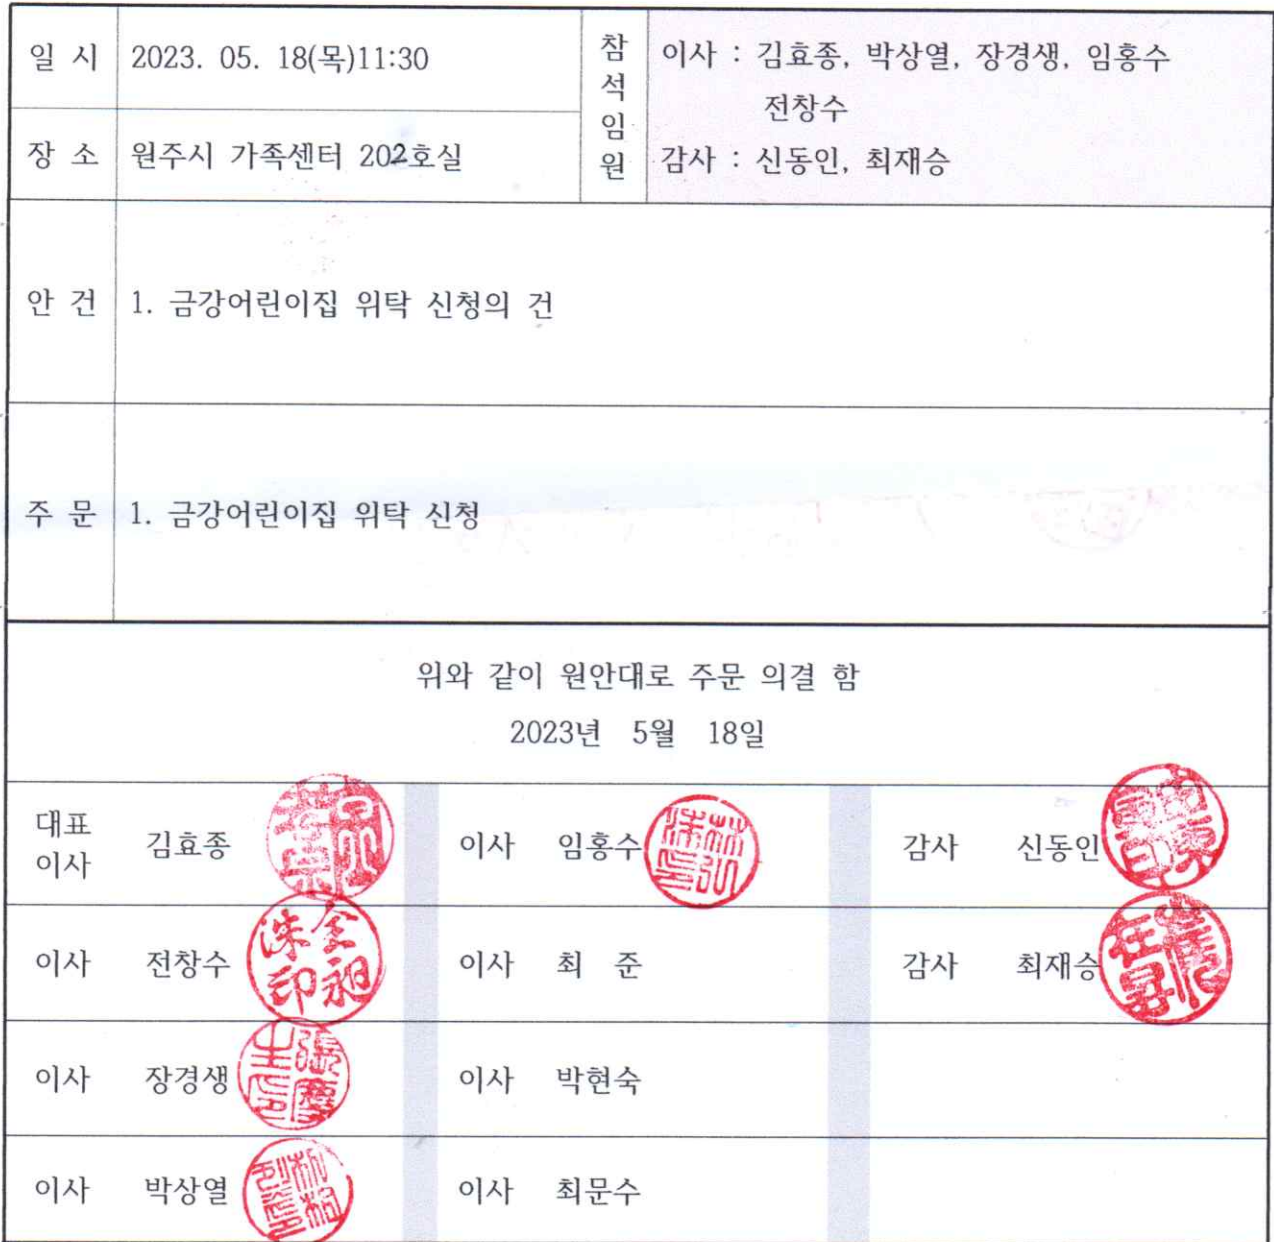 일 시 2023. 05. 18(목)11:30
장 소 원주시 가족센터 202호실
참석임원
이사 : 김효종, 박상열, 장경생, 임홍수
전창수
감사 : 신동인, 최재승
안 건 1. 금강어린이집 위탁 신청의 건
주 문 1. 금강어린이집 위탁 신청
위와 같이 원안대로 주문 의결 함
2023년 5월 18일
대표
이사 김효종 이사 임홍수 감사 신동인
이사 전창수 이사 최 준 감사 최재승
이사 장경생 이사 박현숙
이사 박상열 이사 최문수